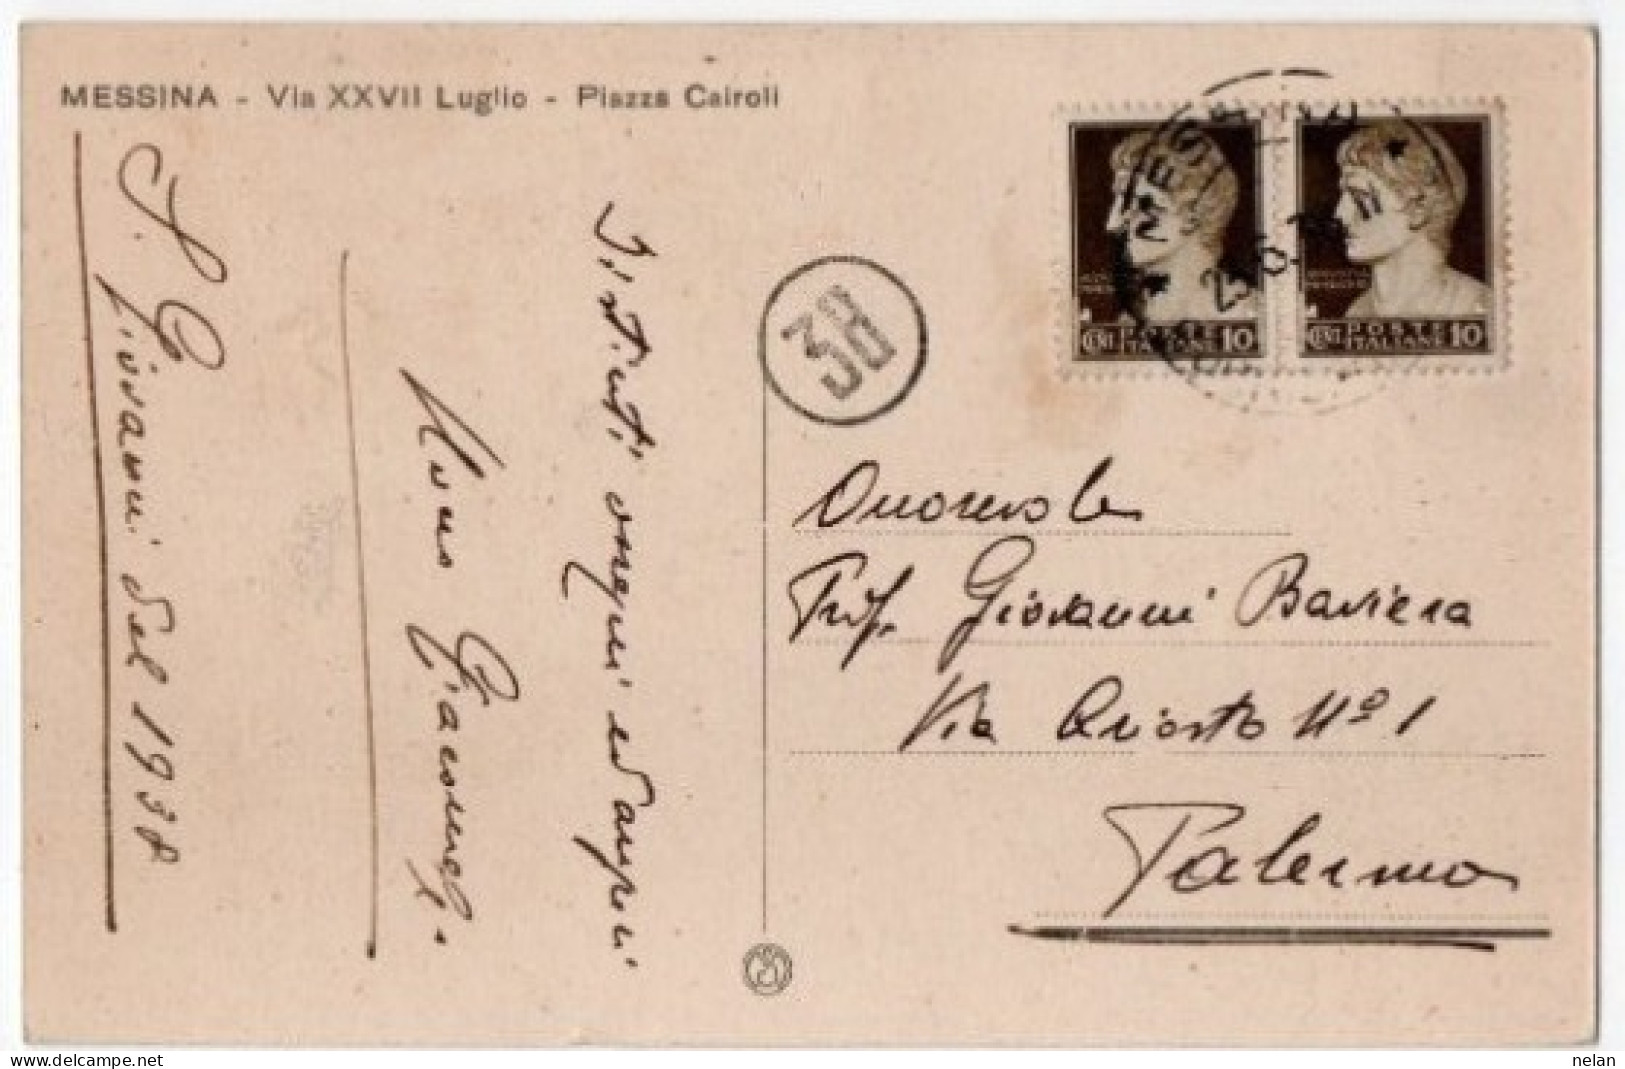 MESSINA - Via XXVII Luglio - Piazza Cairoli
S. Giovanni del 1938
Distinti ossequi ed auguri
38
CENT POSTE ITALIANE 10
CENT POSTE ITALIANE 10
MESSINA
Onorevole
Prof. Giovanni Baviera
Via Ariosto Nº 1
Palermo
delcampe.net
nelan